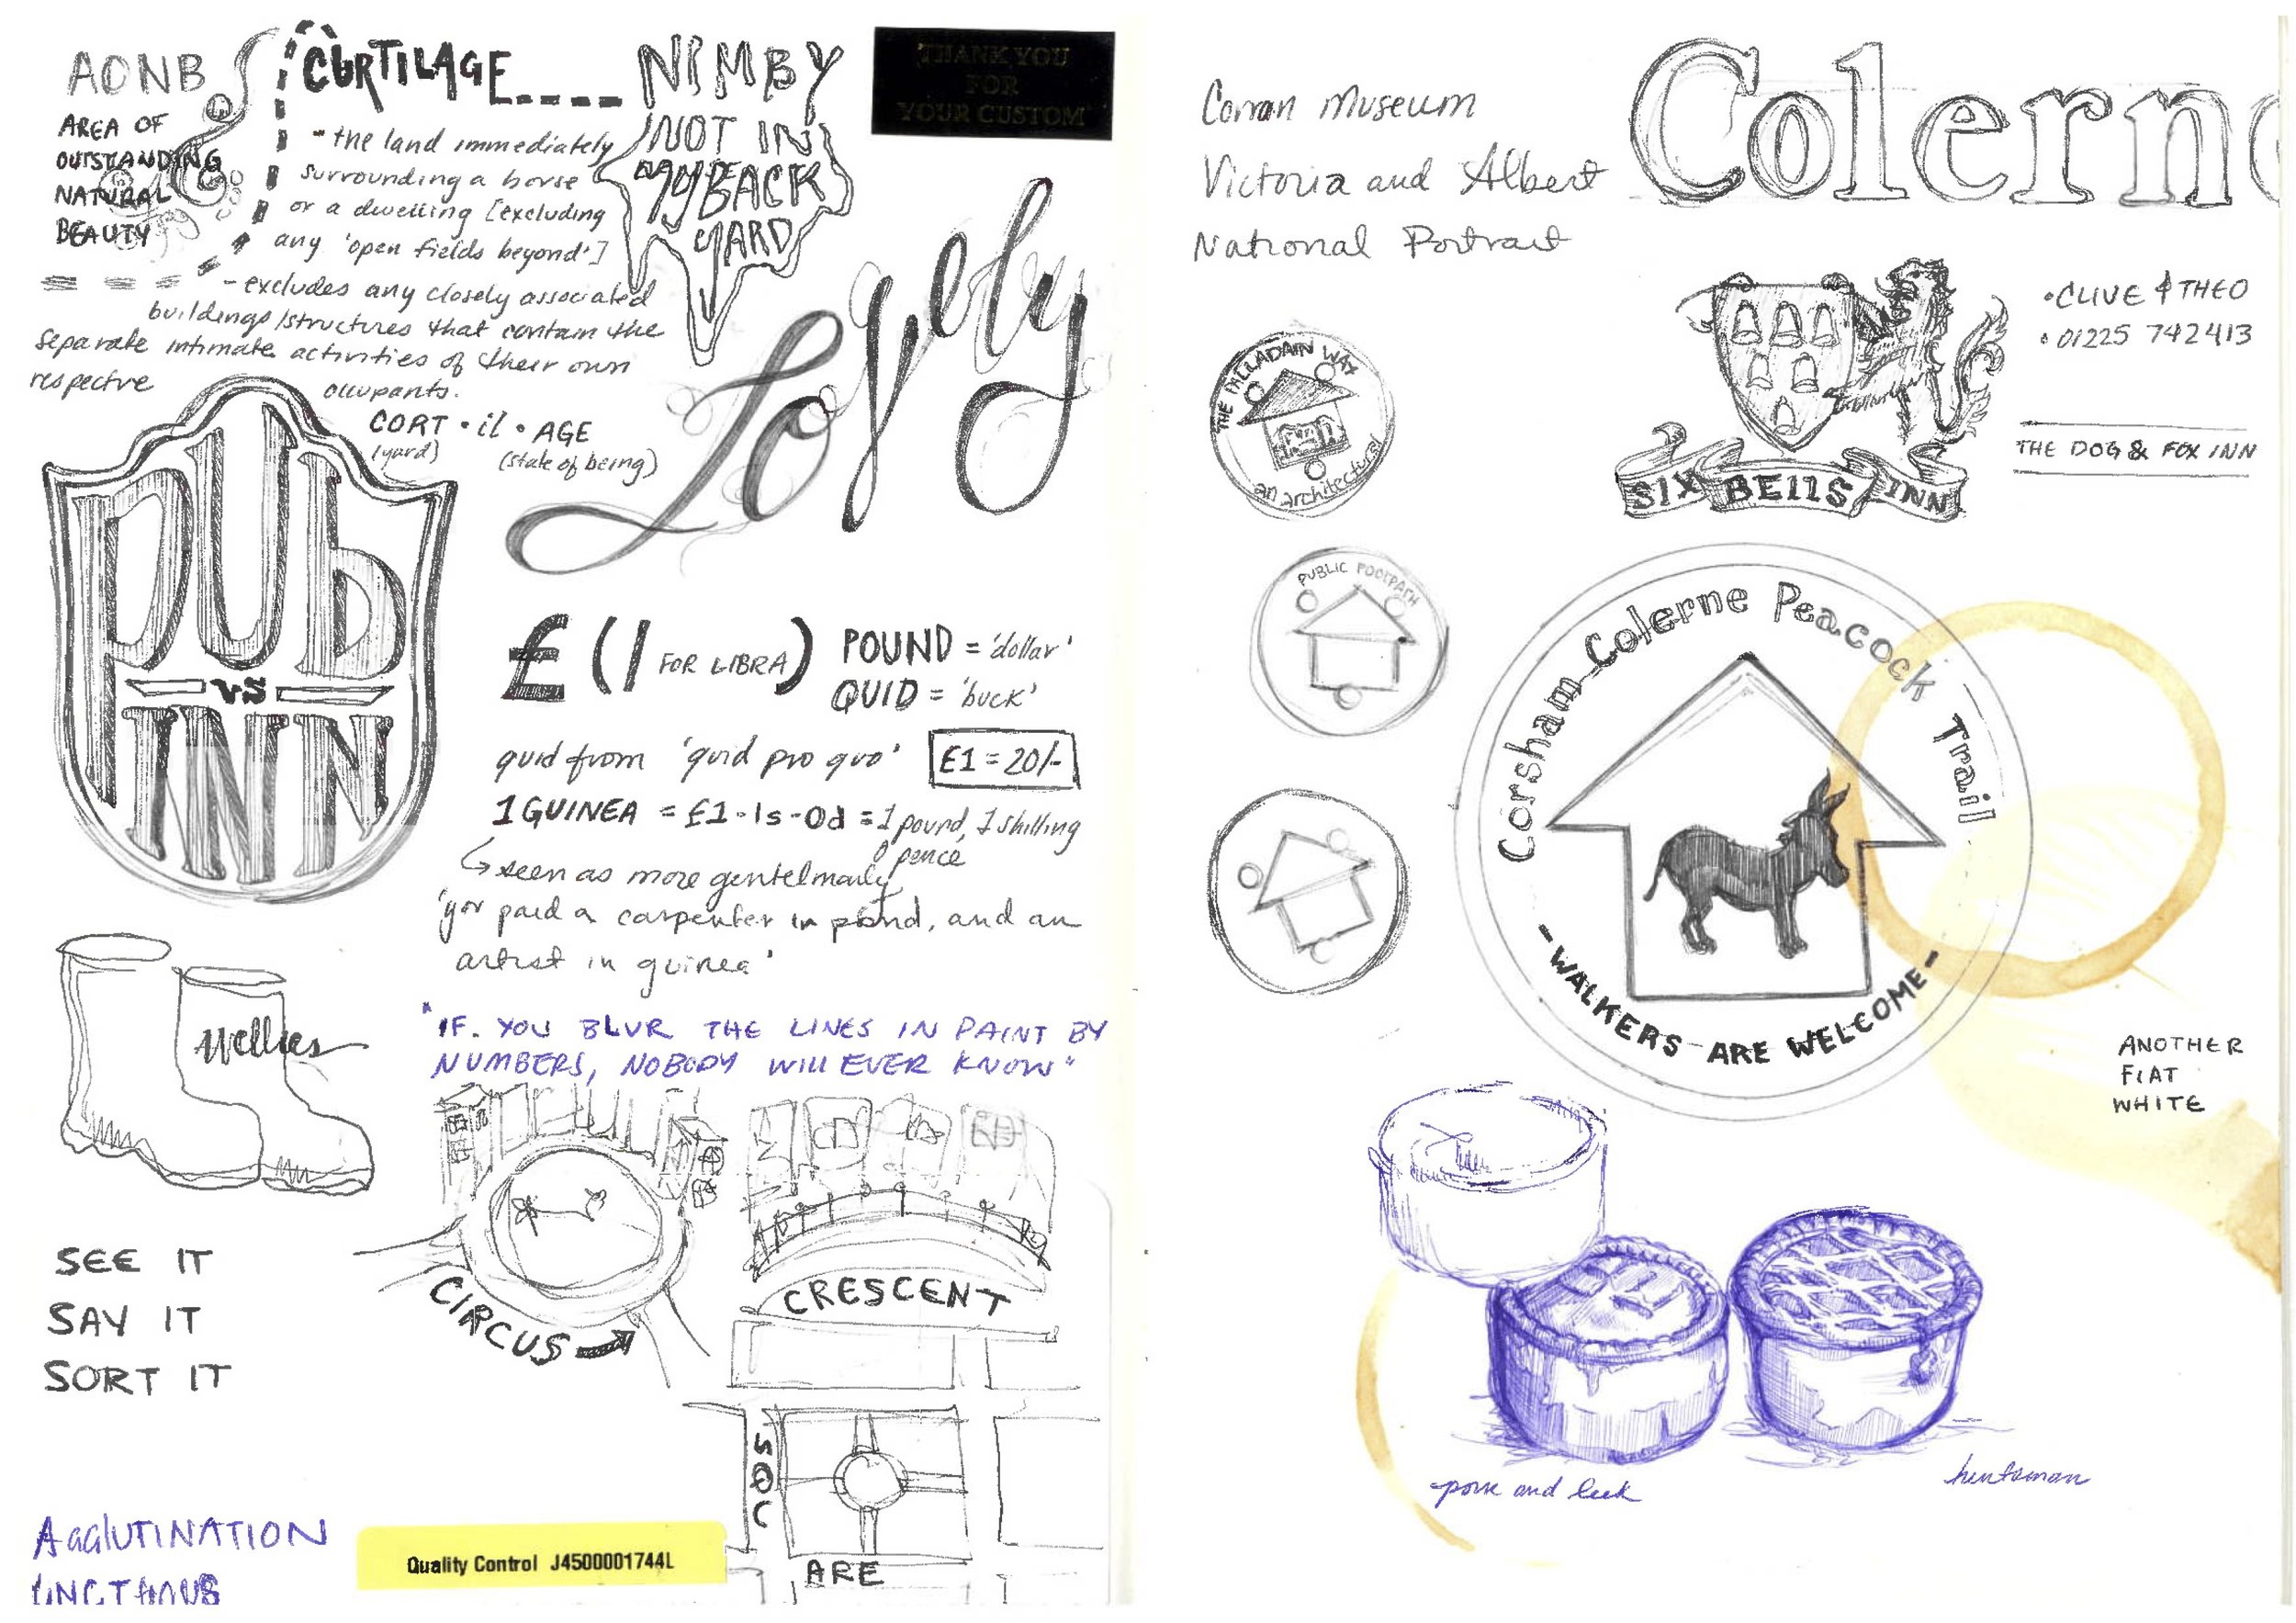 AONB
AREA OF
OUTSTANDING
NATURAL
BEAUTY
CURTILAGE
- the land immediately
surrounding a horse
or a dwelling [excluding
any 'open fields beyond']
- excludes any closely associated
buildings/structures that contain the
separate intimate activities of their own
respective
occupants.
CORT · il · AGE
(yard) (state of being)
NIMBY
NOT IN
MY BACK
YARD
THANK YOU
FOR
YOUR CUSTOM
Lovely
PUb
VS
INN
£ (l FOR LIBRA)
POUND = 'dollar'
QUID = 'buck'
quid from 'quid pro quo'
£1 = 20/-
1 GUINEA = £1-1s-0d = 1 pound, 1 shilling
0 pence
seen as more gentelmanly
'you paid a carpenter in pound, and an
artist in guinea'
"IF. YOU BLUR THE LINES IN PAINT BY
NUMBERS, NOBODY WILL EVER KNOW"
Wellies
SEE IT
SAY IT
SORT IT
CIRCUS
CRESCENT
SQU
ARE
AgglUTINATION
Quality Control J4500001744L
Conran Museum
Victoria and Albert
National Portrait
Colerne
THE PALLADAIN WAY
an architectural
SIX BEllS INN
• CLIVE & THEO
• 01225 742413
THE DOG & FOX INN
PUBLIC FOOTPATH
Corsham-Colerne Peacock Trail
-WALKERS ARE WELCOME-
ANOTHER
FLAT
WHITE
pork and leek
huntsman